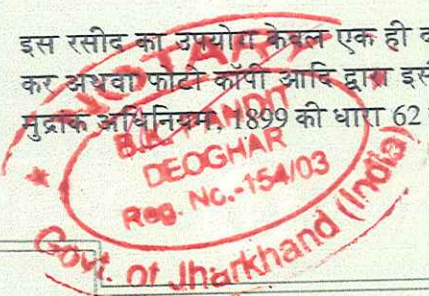 इस रसीद का उपयोग केवल एक ही
कर अथवा फोटो कॉपी आदि द्वारा
मुद्रांक अधिनियम, 1899 की धारा 62
NOTARY
B.K. PANDIT
DEOGHAR
Reg. No.-154/03
Govt. of Jharkhand (India)